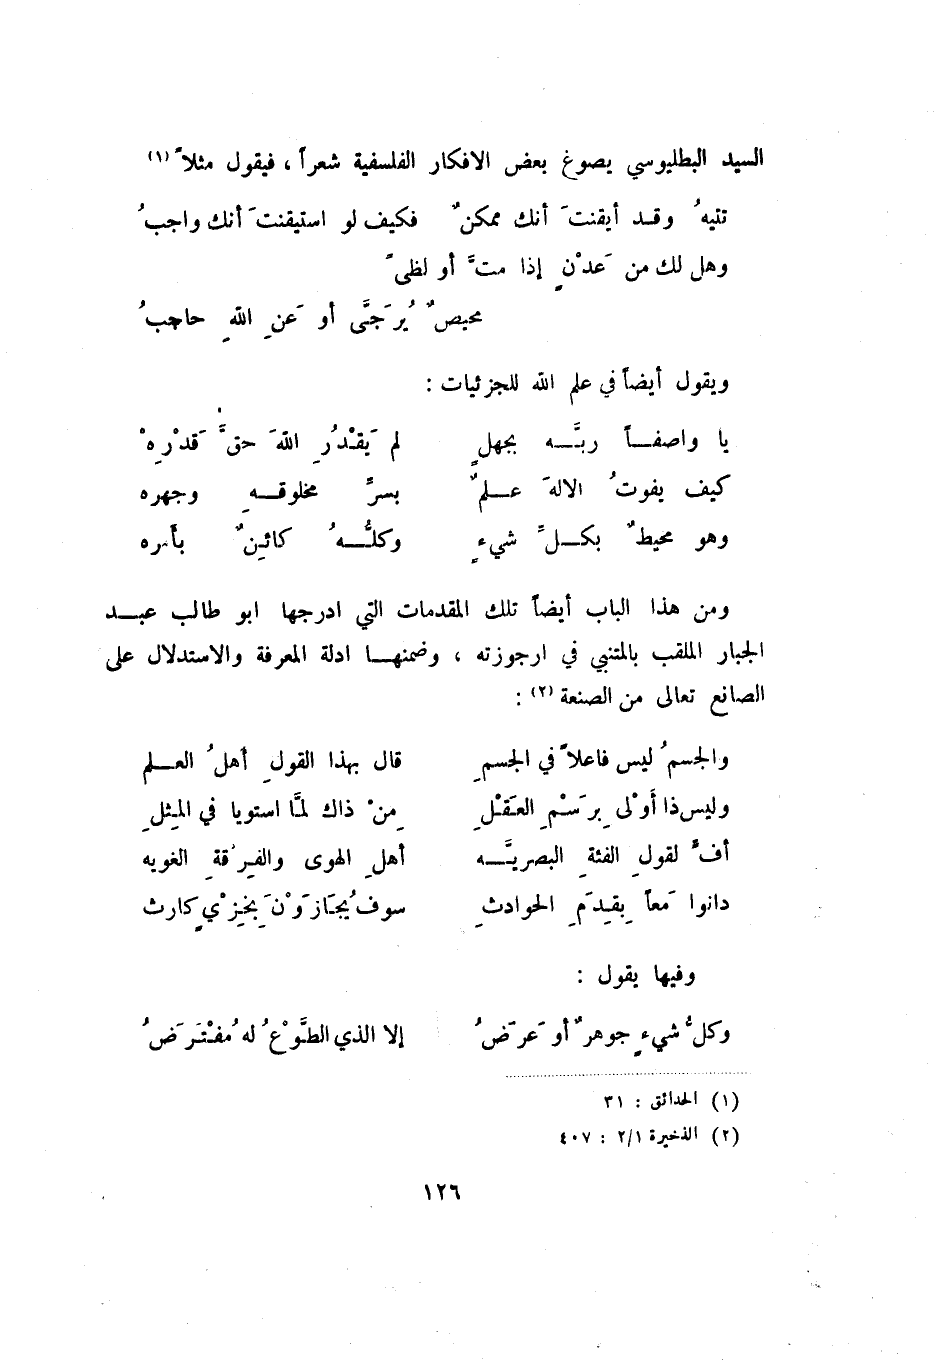 السيد البطليوسي يصوغ بعض الافكار الفلسفية شعراً ، فيقول مثلاً (١)
تتيهُ وقد أيقنتَ أنك ممكنٌ فكيف لو استيقنتَ أنك واجبُ
وهل لك من عَدْنٍ إذا متَّ أو لظىً
محيصٌ يُرَجَّى أو عَنِ اللهِ حاجبُ
ويقول أيضاً في علم الله للجزئيات :
يا واصفـاً ربَّـه بجهلٍ لم يَقْدُرِ اللهَ حقَّ قَدْرِهْ
كيف يفوتُ الالهَ علمٌ بسرِّ مخلوقهِ وجهره
وهو محيطٌ بكلِّ شيءٍ وكلُّهُ كائنٌ بأمره
ومن هذا الباب أيضاً تلك المقدمات التي ادرجها ابو طالب عبد
الجبار الملقب بالمتنبي في ارجوزته ، وضمنها ادلة المعرفة والاستدلال على
الصانع تعالى من الصنعة (٢) :
والجسمُ ليس فاعلاً في الجسمِ قال بهذا القولِ أهلُ العلم
وليس ذا أَوْلى بِرَسْمِ العَقْلِ مِنْ ذاك لمَّا استويا في المِثلِ
أفٍّ لقولِ الفئةِ البصريَّـه أهلِ الهوى والفِرْقةِ الغويه
دانوا مَعاً بِقِدَمِ الحوادثِ سوف يُجَازَوْنَ بِخِزْيٍ كارث
وفيها يقول :
وكلُّ شيءٍ جوهرٌ أو عَرَضُ إلا الذي الطَّوْعُ له مُفْتَرَضُ
(١) الحدائق : ٣١
(٢) الذخيرة ٢/١ : ٤٠٧
١٢٦